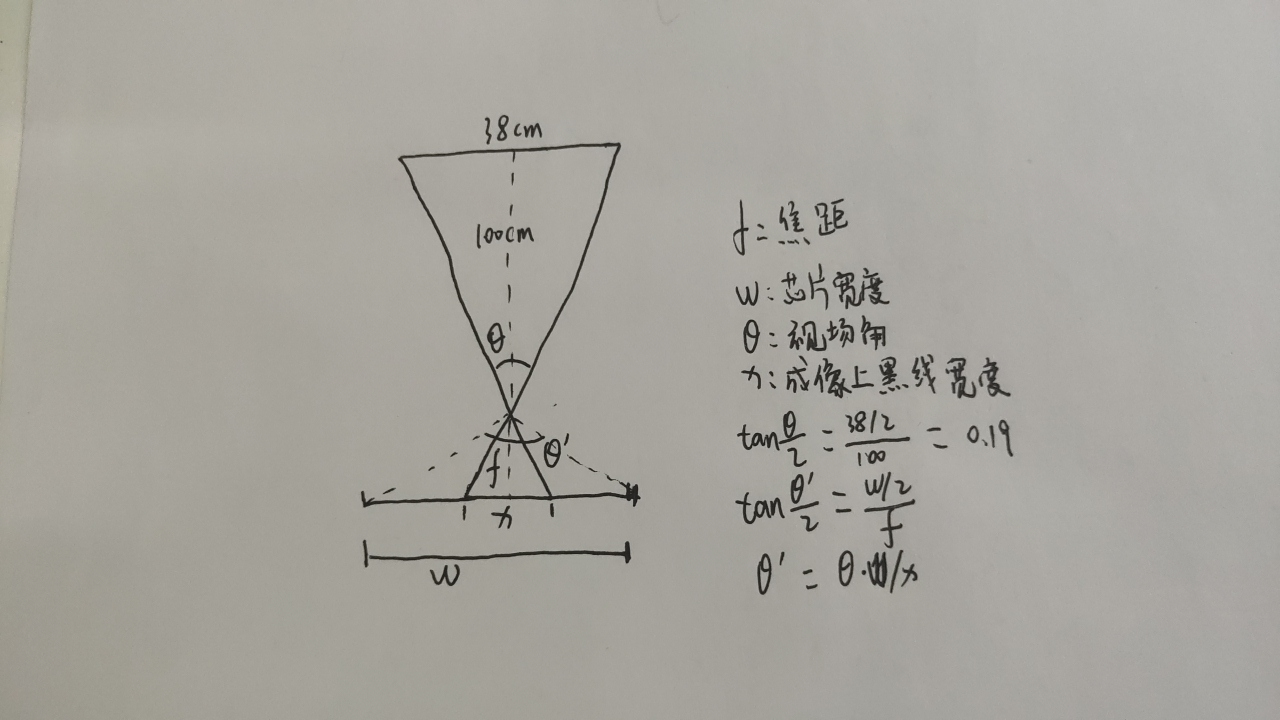 38cm
100cm
θ
f
θ'
x
w
f: 焦距
w: 芯片宽度
θ: 视场角
x: 成像上黑线宽度
tan θ/2 = (38/2)/100 = 0.19
tan θ'/2 = (w/2)/f
θ' = θ·w/x